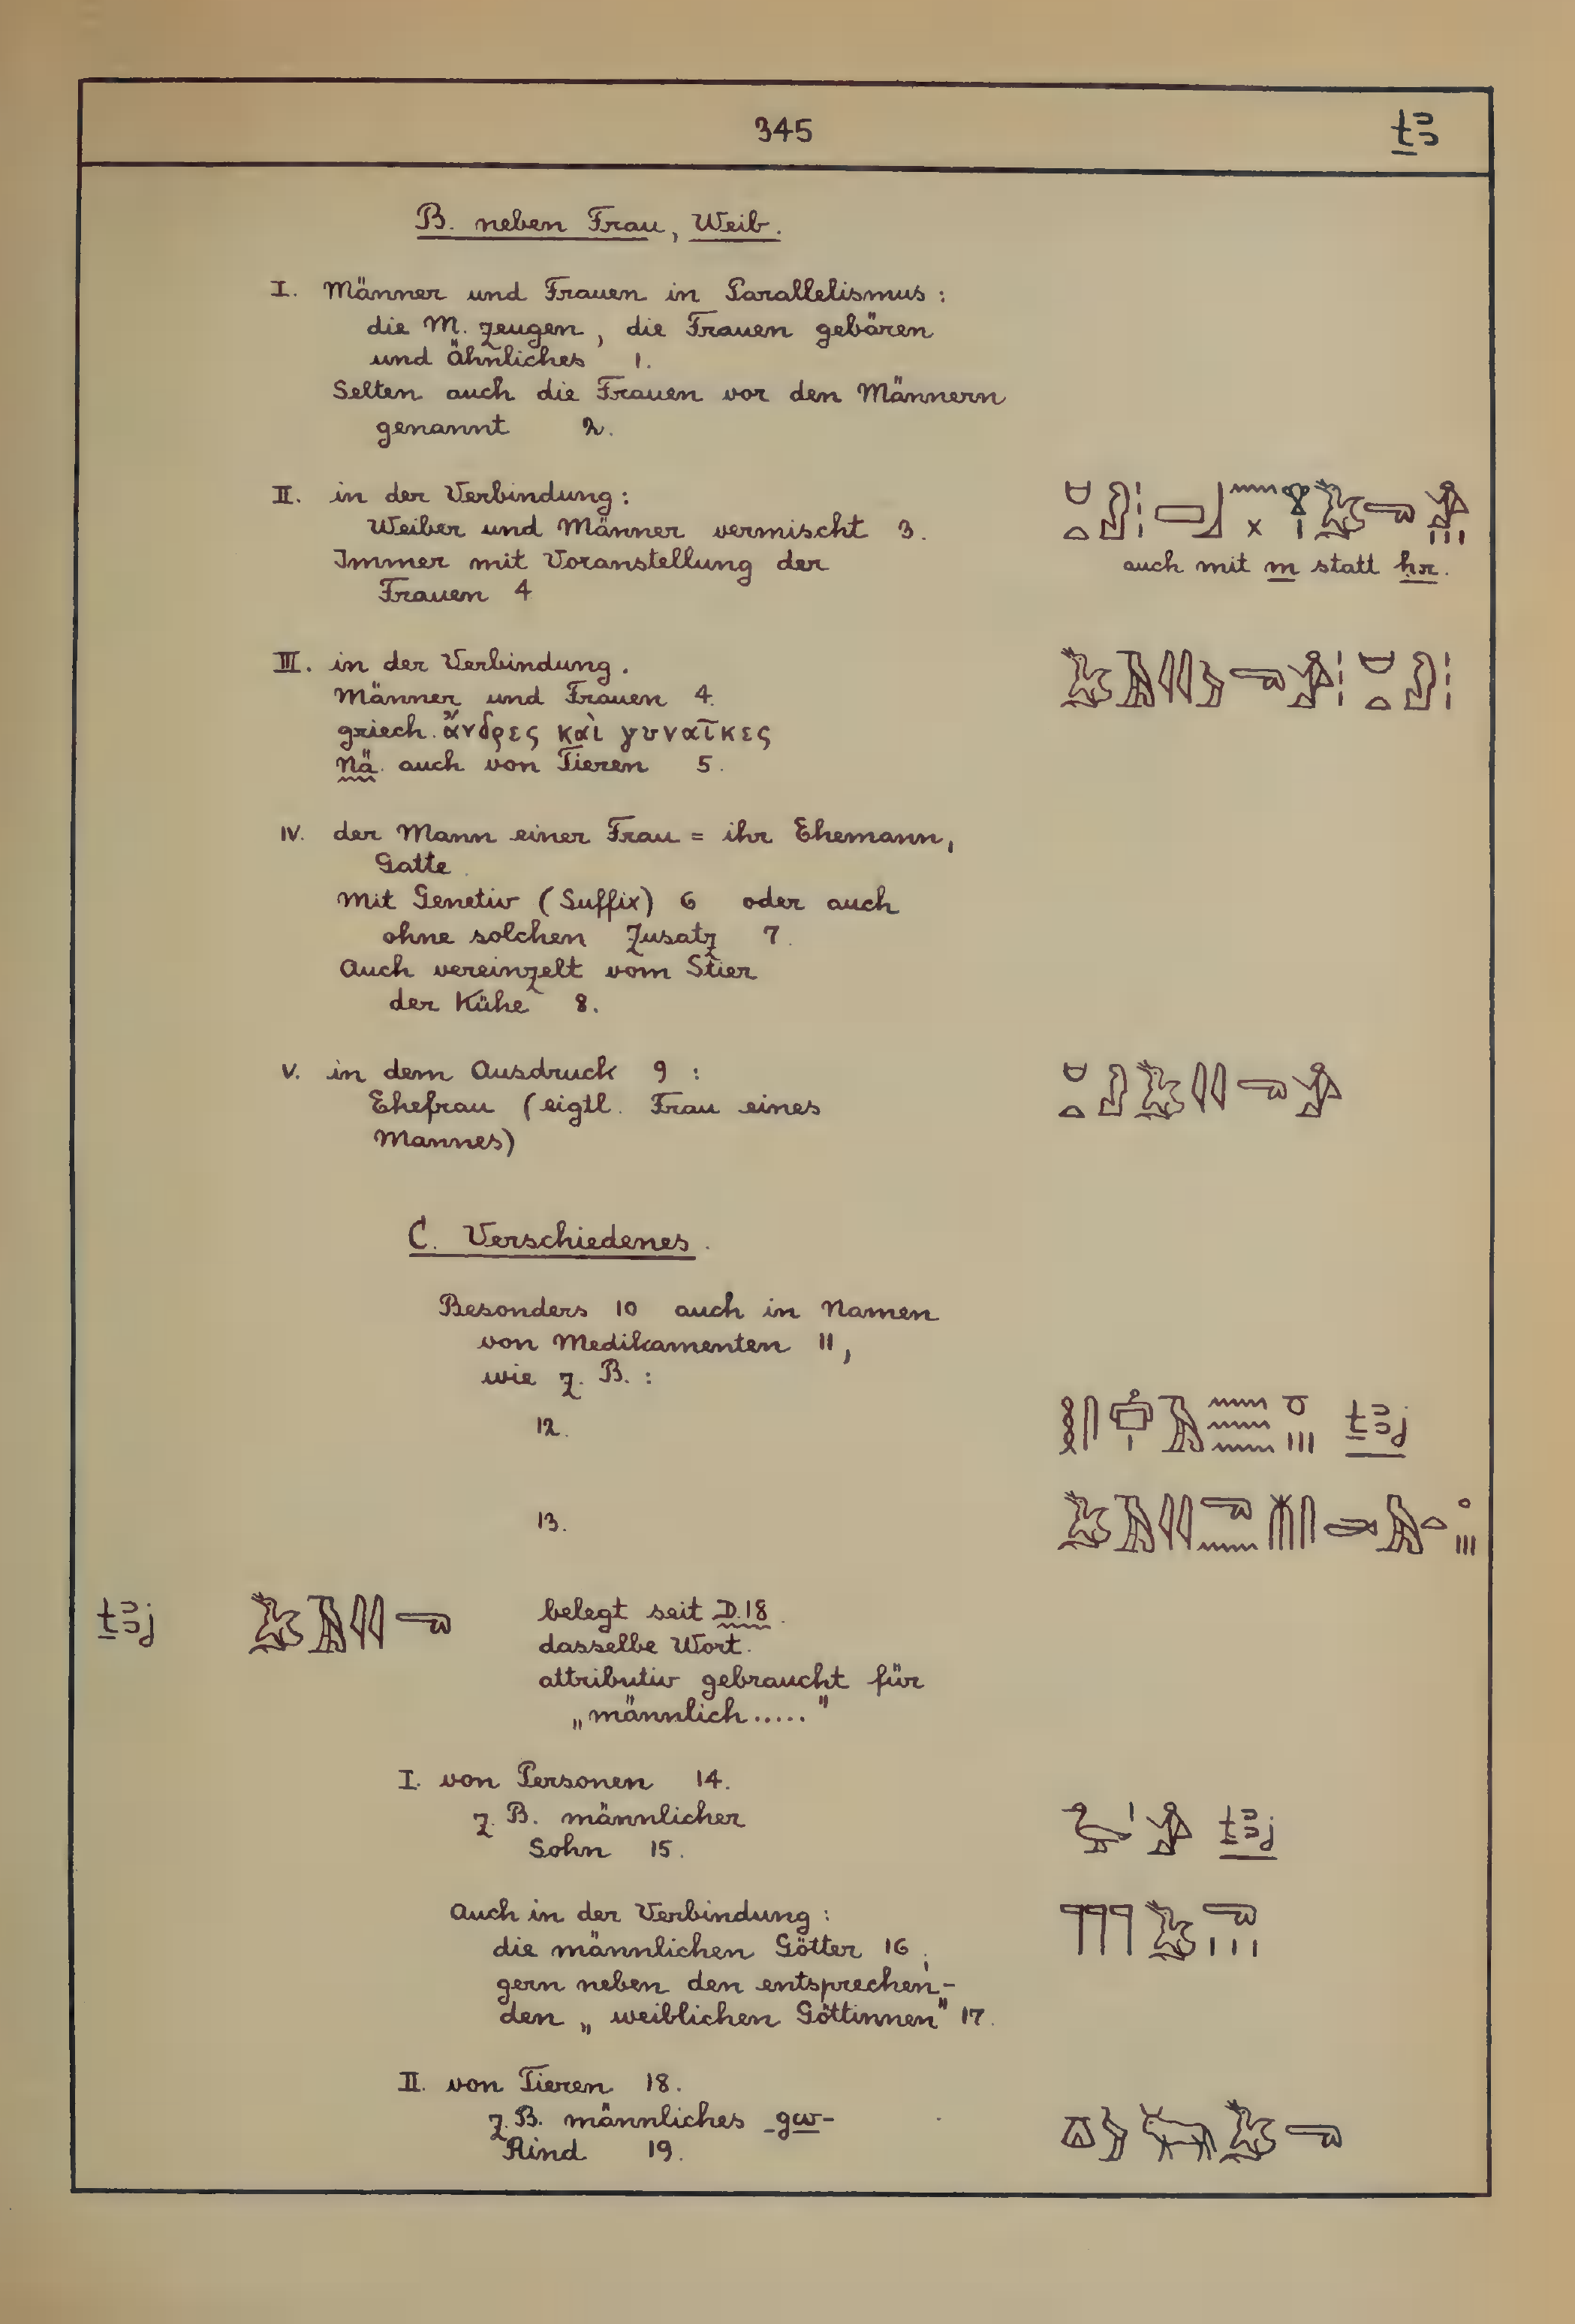 345 ṯꜣ
B. neben Frau, Weib.
I. Männer und Frauen in Parallelismus:
die M. zeugen, die Frauen gebären
und ähnliches 1.
Selten auch die Frauen vor den Männern
genannt 2.
II. in der Verbindung:
Weiber und Männer vermischt 3.
Immer mit Voranstellung der
Frauen 4
auch mit m statt ḥr.
III. in der Verbindung.
Männer und Frauen 4.
griech. ἄνδρες καὶ γυναῖκες
Nä. auch von Tieren 5.
IV. der Mann einer Frau = ihr Ehemann,
Gatte.
mit Genetiv (Suffix) 6 oder auch
ohne solchen Zusatz 7.
Auch vereinzelt vom Stier
der Kühe 8.
V. in dem Ausdruck 9:
Ehefrau (eigtl. Frau eines
Mannes)
C. Verschiedenes.
Besonders 10 auch in Namen
von Medikamenten 11,
wie z. B.:
12. ṯꜣj
13.
ṯꜣj belegt seit D.18.
dasselbe Wort.
attributiv gebraucht für
„männlich....."
I. von Personen 14.
z. B. männlicher
Sohn 15. ṯꜣj
Auch in der Verbindung:
die männlichen Götter 16,
gern neben den entsprechen-
den „weiblichen Göttinnen" 17.
II. von Tieren 18.
z. B. männliches gw-
Rind 19.